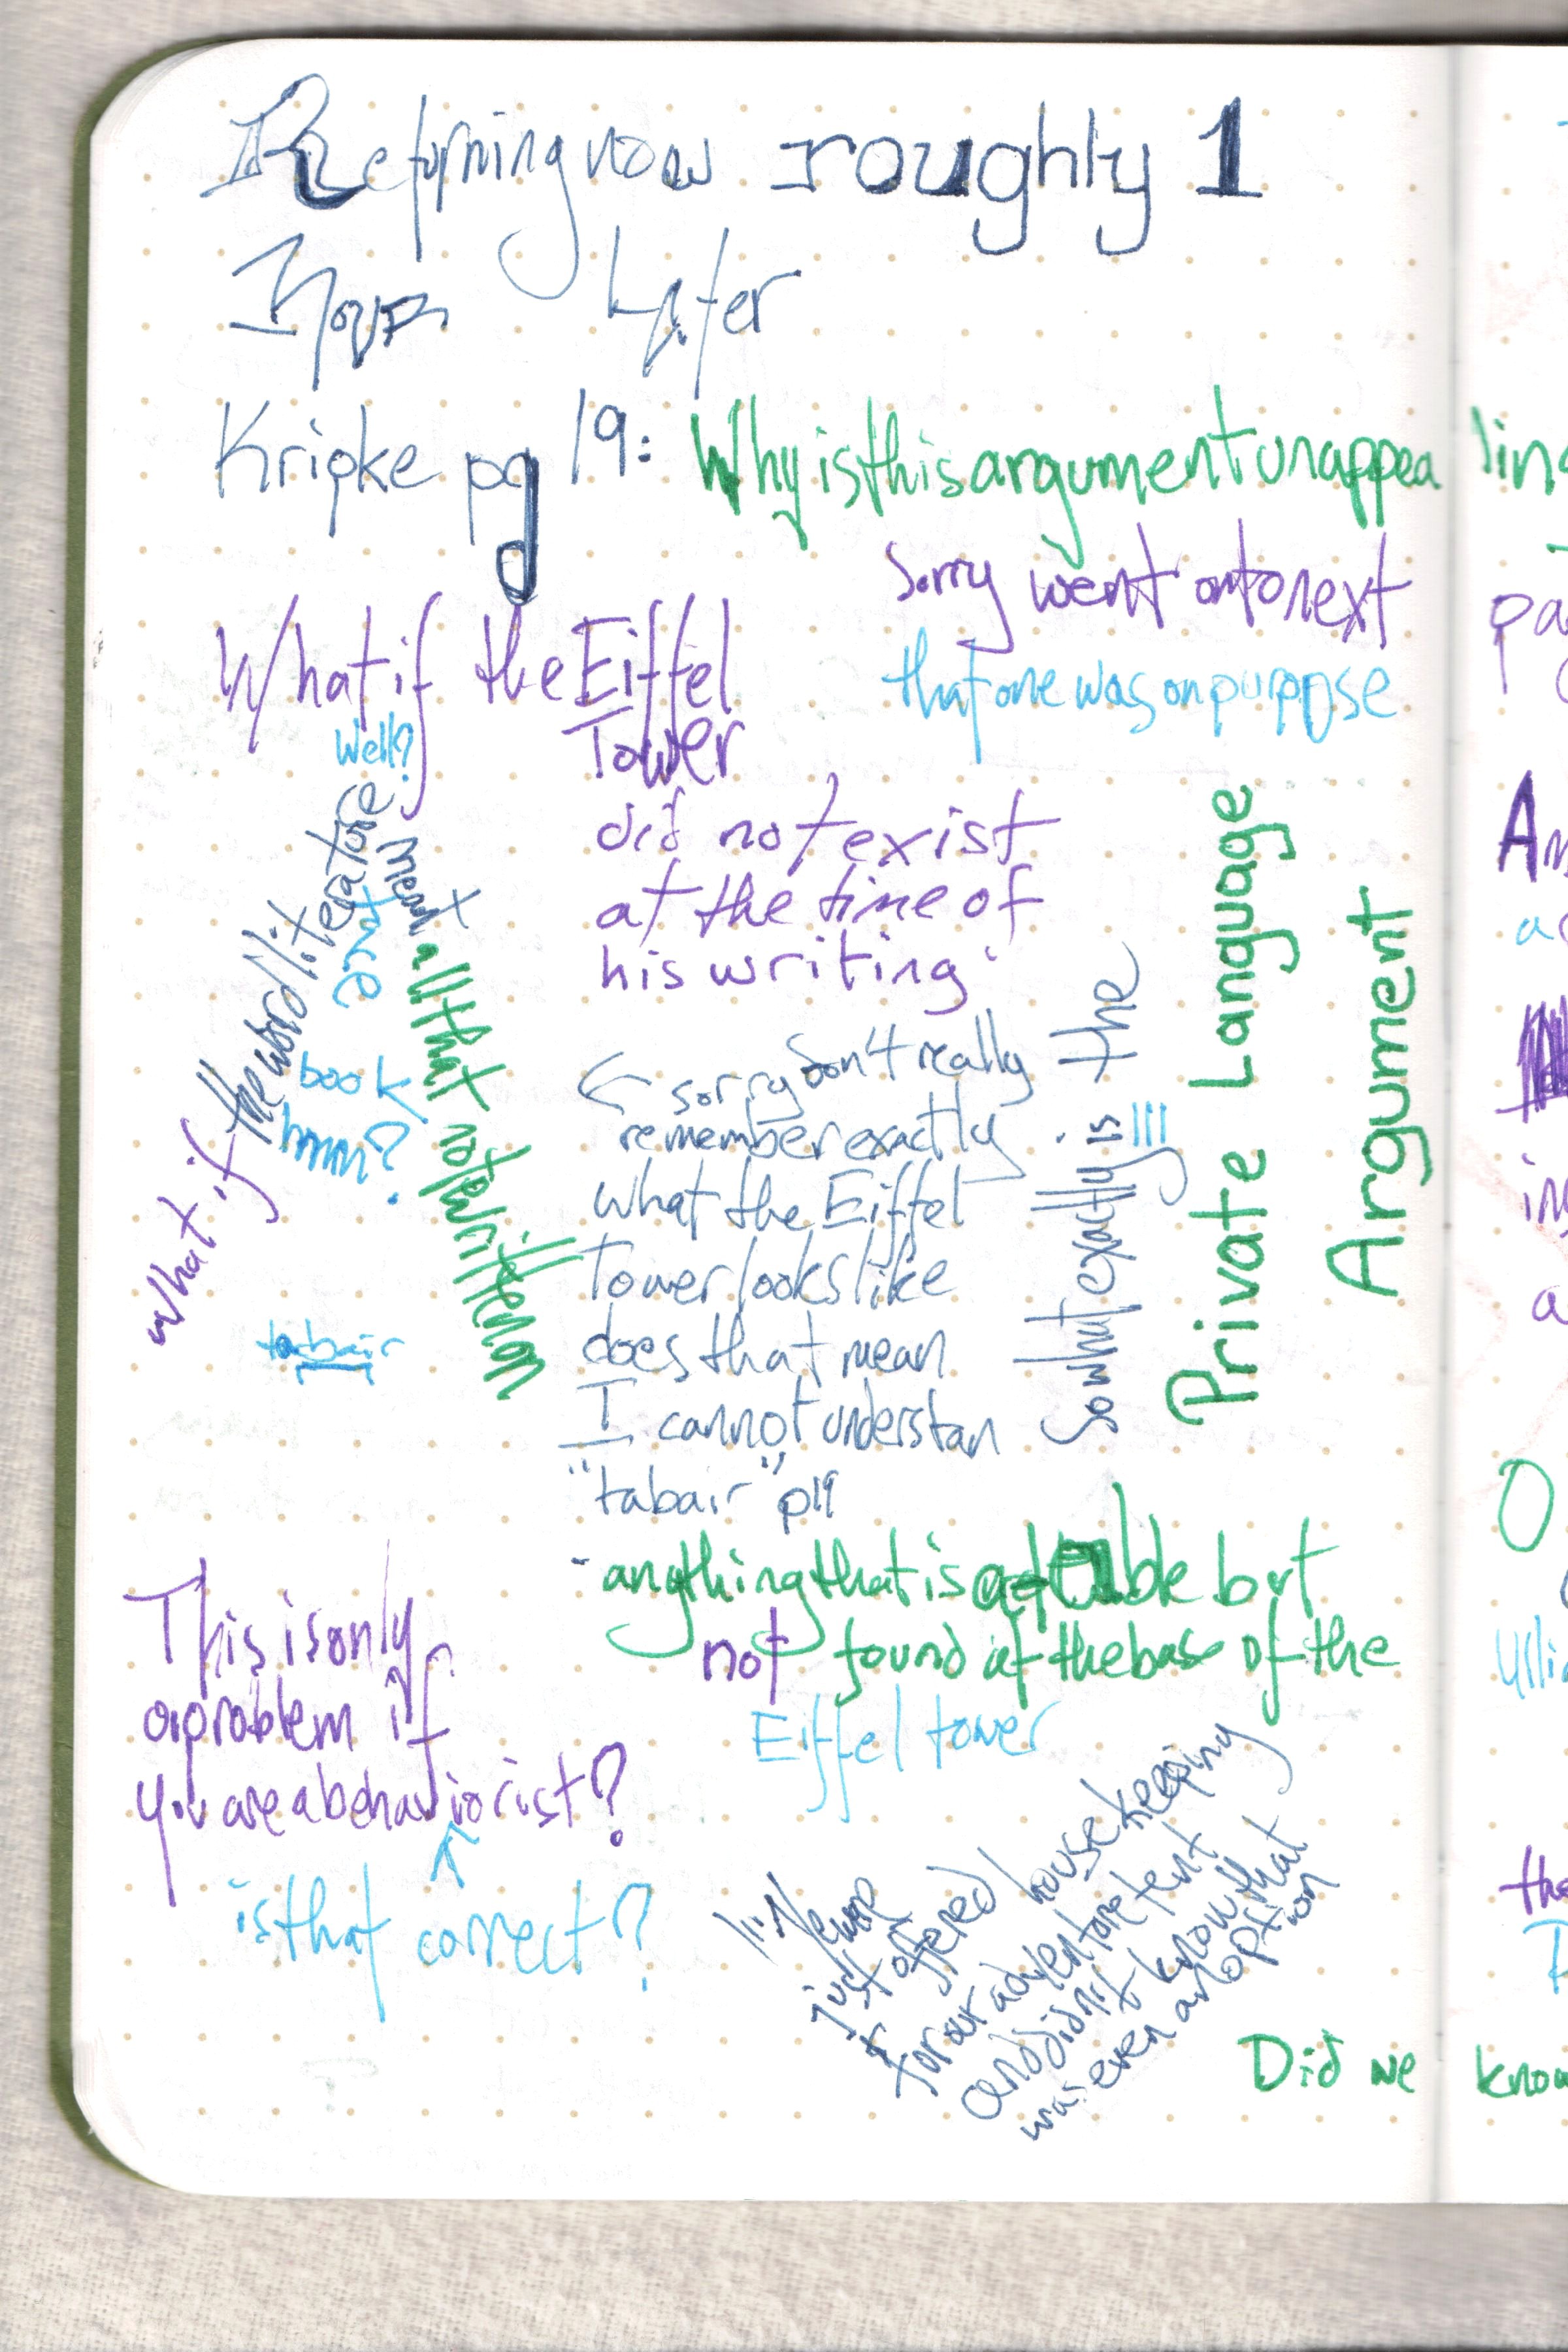 Returning now roughly 1
Hour Later
Kripke pg 19: Why is this argument unappea ling
Sorry went onto next
that one was on purppse
What if the Eiffel
Tower
did not exist
at the time of
his writing
Well?
What if the word literature
meant
all that not written on
are
book
hmm?
tabair
← sorry don't really
remember exactly
what the Eiffel
Tower looks like
does that mean
I cannot understan
"tabair" p19
So what exactly is the
!!!
Private Language
Argument
- anything that is a table but
not found at the base of the
Eiffel tower
This is only
a problem if
you are a behaviorist?
is that correct?
!!! We were
just offered housekeeping
for our adventure tent
and didn't know that
was even an option
Did we know